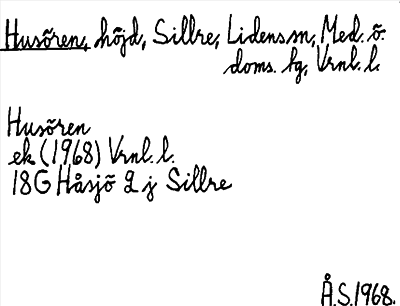 Husören, höjd, Sillre, Lidens sn, Med. ö.
doms. hg, Vrnl. l.
Husören
ek (1968) Vrnl. l.
18G Håsjö 2 j Sillre
Å.S. 1968.